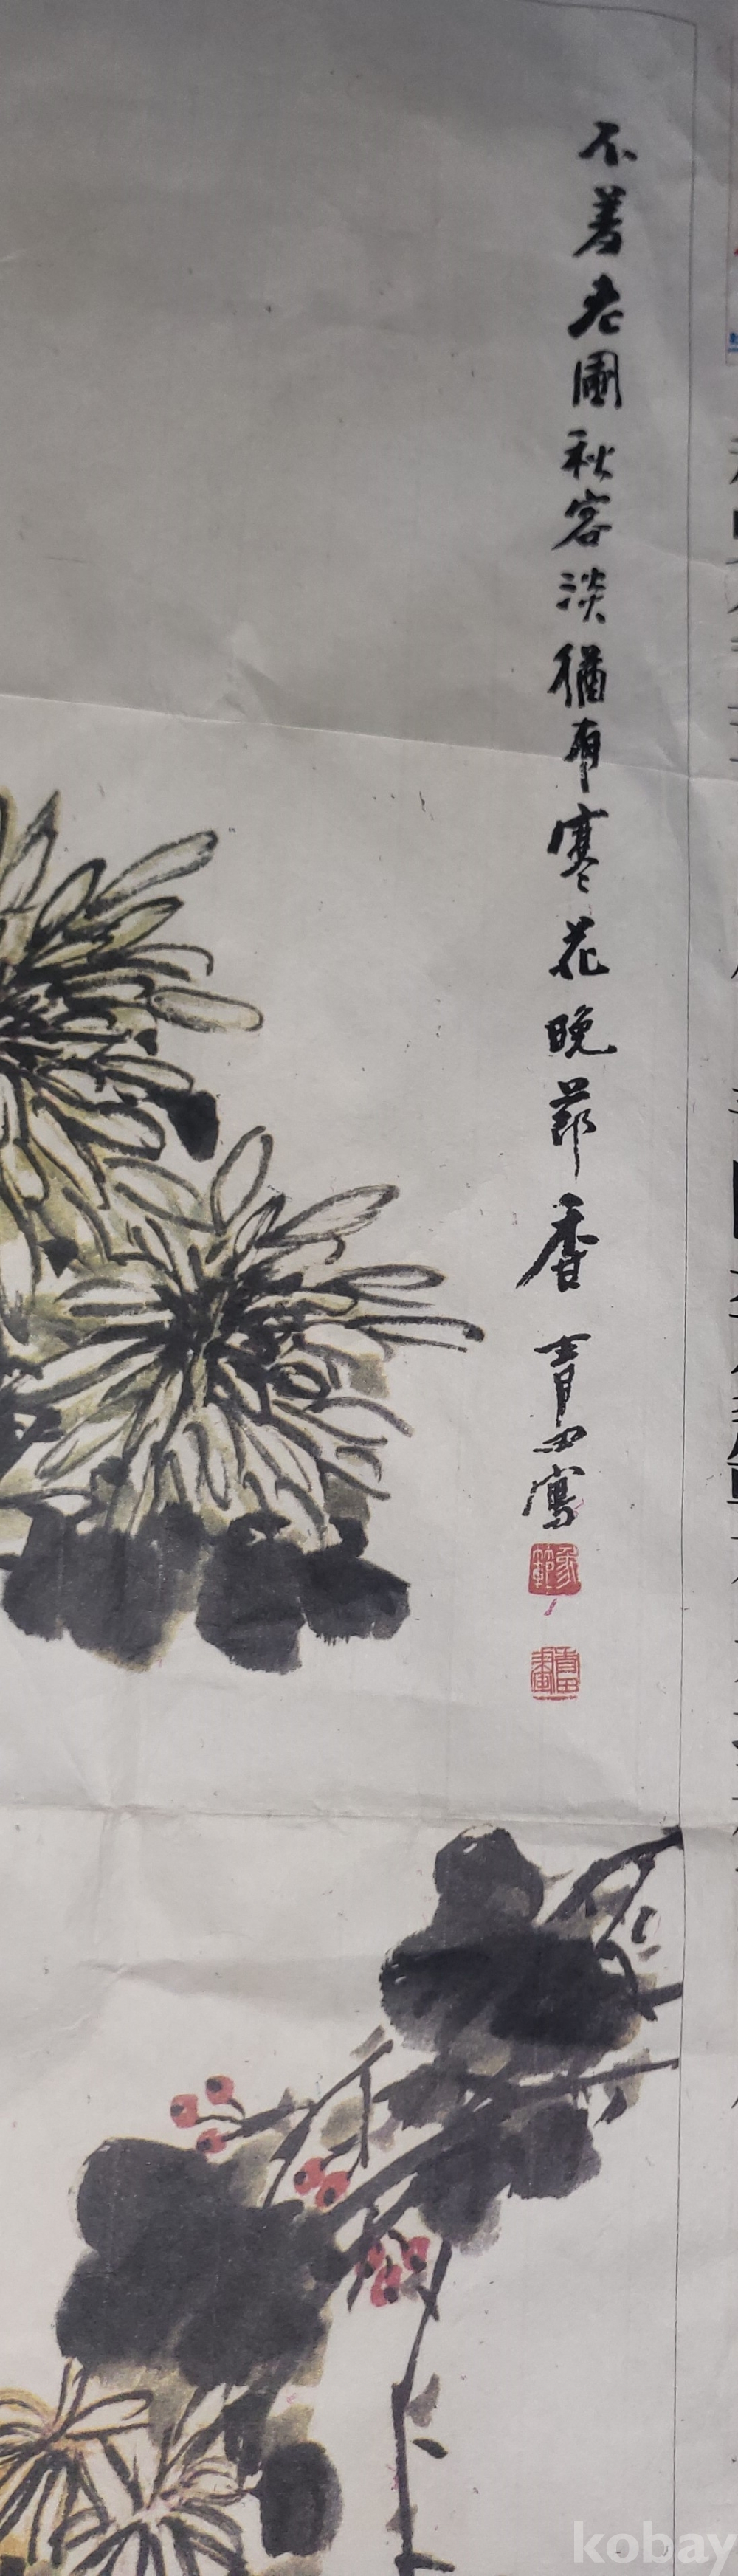 不羞老圃秋容淡猶有寒花晚節香 青田寫
象範
青田畫
kobay